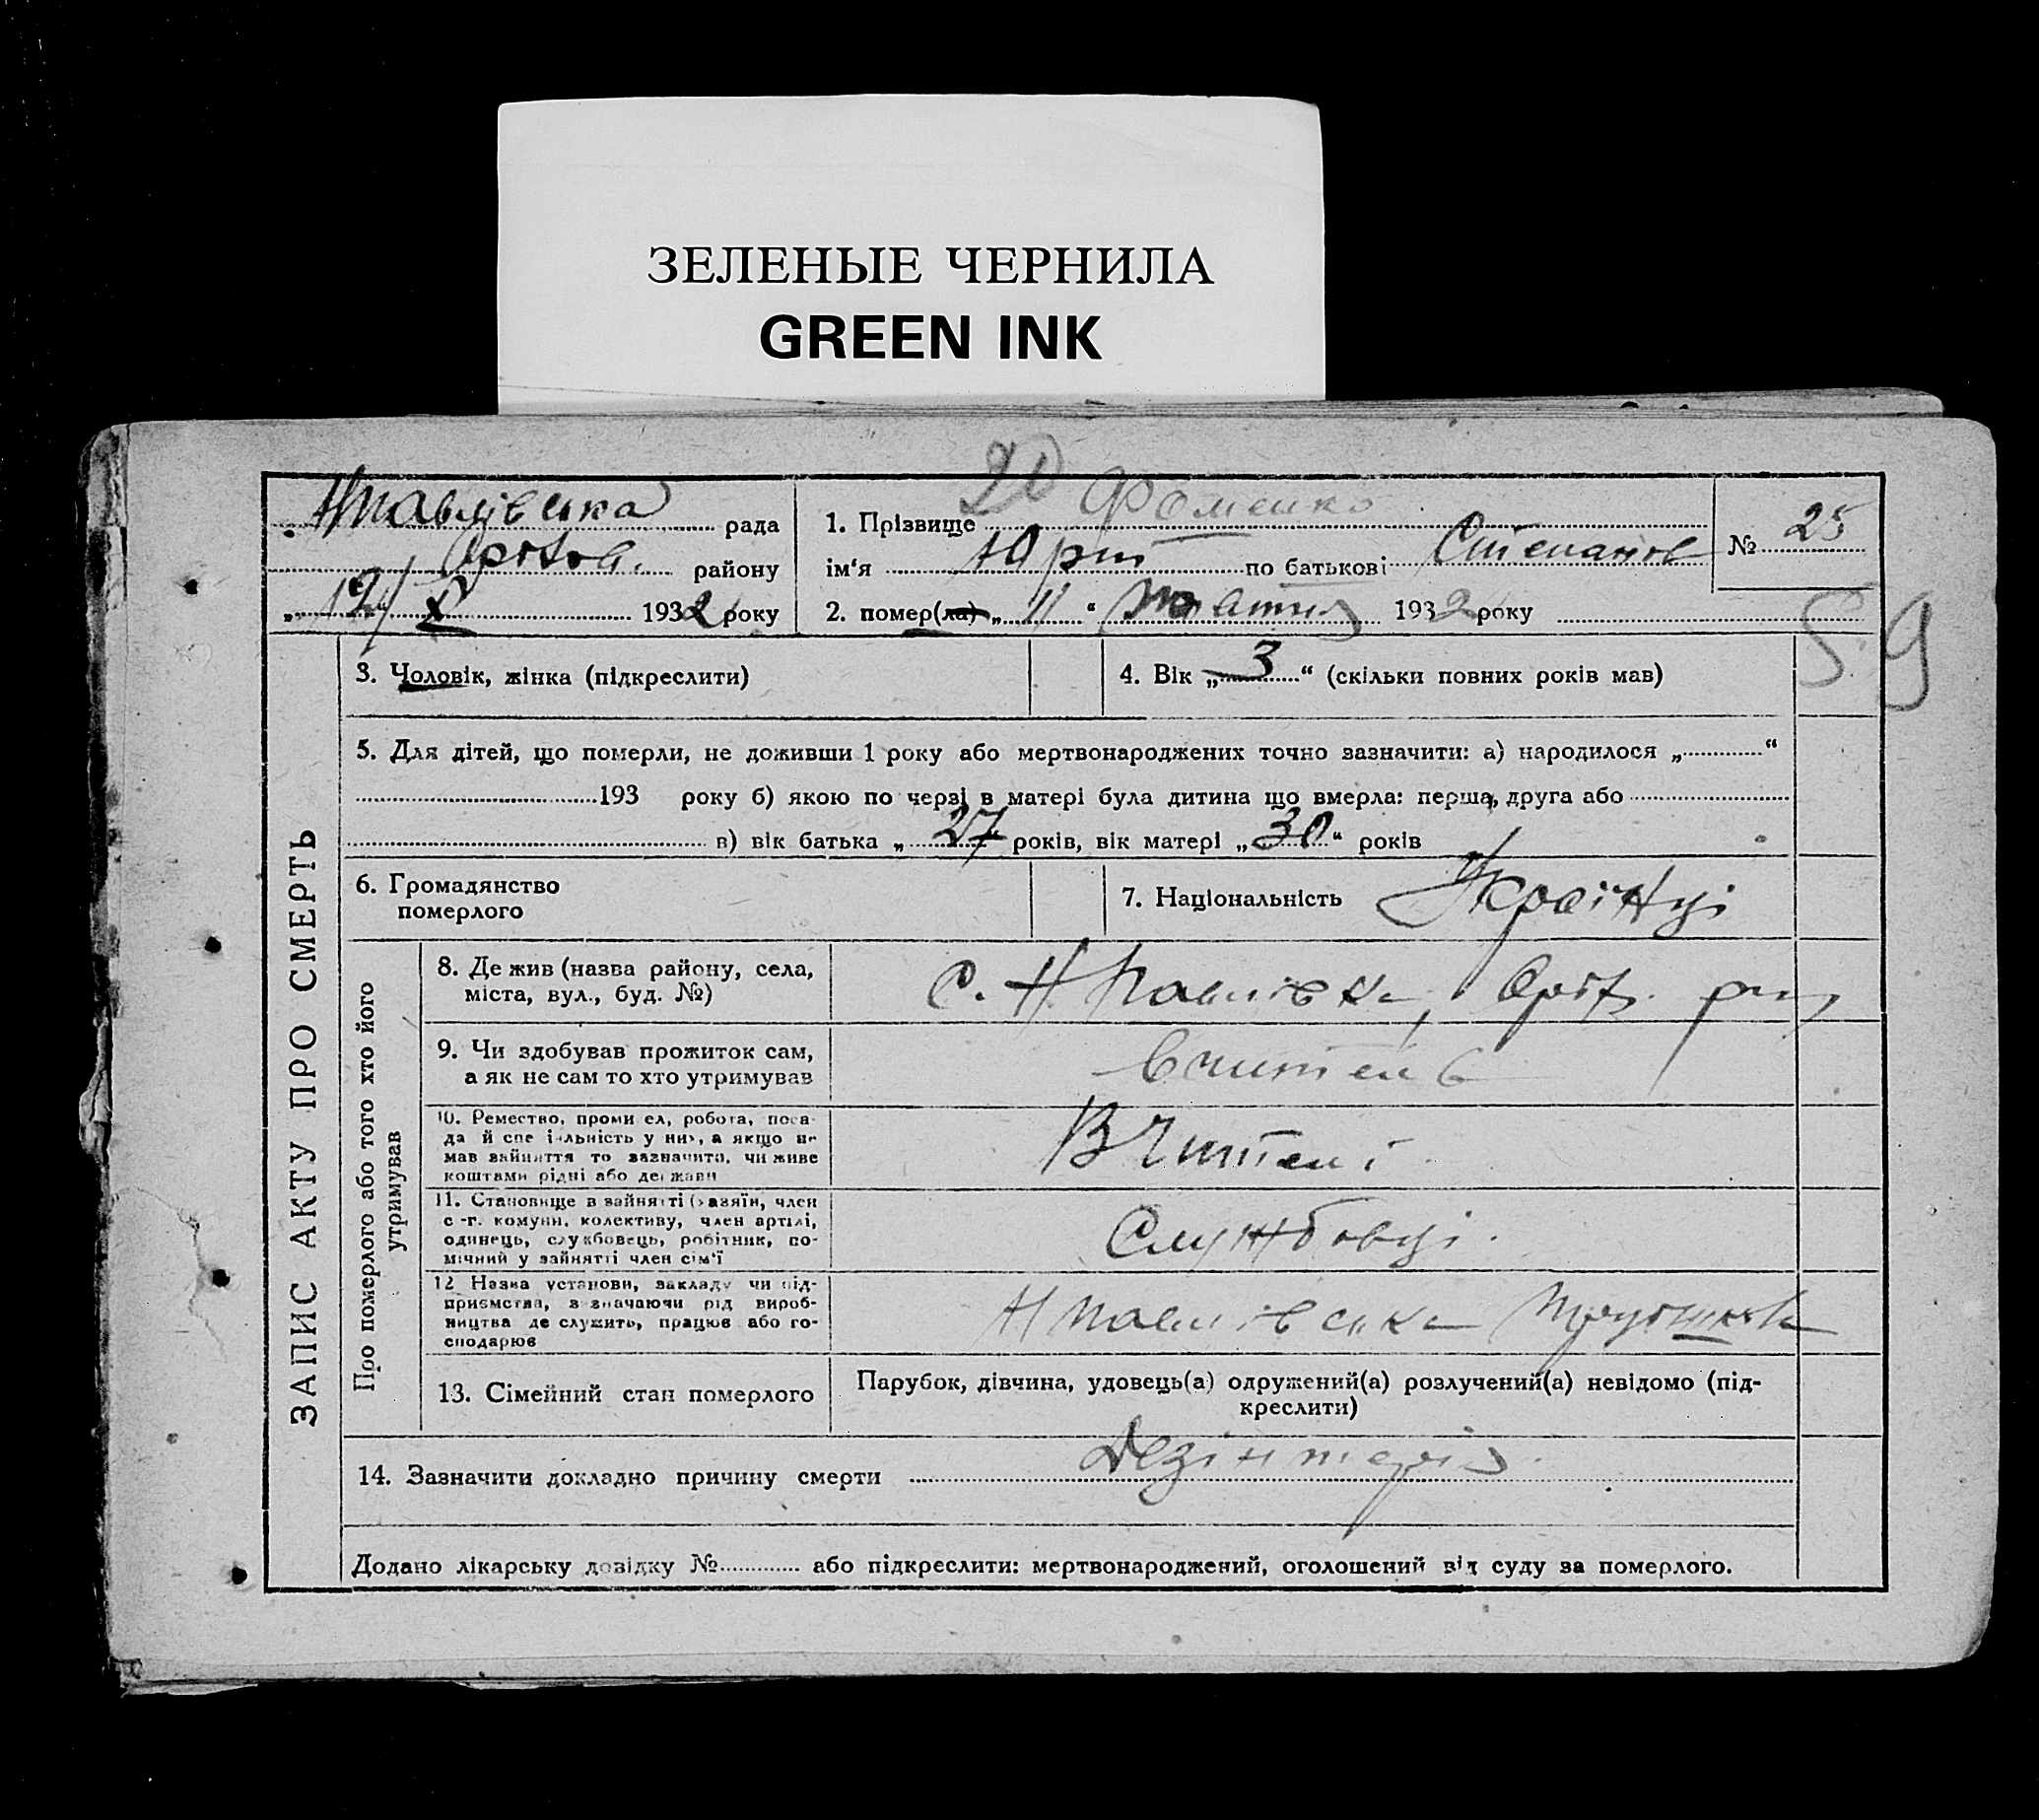 ЗЕЛЕНЫЕ ЧЕРНИЛА
GREEN INK
20
Нпавлівська рада
Оріхов. району
„12“ X 1932 року
1. Прізвище Фоменко
ім'я Юрт по батькові Степанов
2. помер(ла) „11“ Жовтня 1932 року
№ 25
59
ЗАПИС АКТУ ПРО СМЕРТЬ
3. Чоловік, жінка (підкреслити)
4. Вік „3“ (скільки повних років мав)
5. Для дітей, що померли, не доживши 1 року або мертвонароджених точно зазначити: а) народилося „ “
193 року б) якою по черзі в матері була дитина що вмерла: перша, друга або
в) вік батька „27 років, вік матері „30“ років
6. Громадянство
померлого
7. Національність Українці
Про померлого або того хто його
утримував
8. Де жив (назва району, села,
міста, вул., буд. №)
С. Н Павлівка, Оріх. рай
9. Чи здобував прожиток сам,
а як не сам то хто утримував
Вчитель
10. Ремество, промисел, робота, поса-
да й спеціяльність у них, а якщо не
мав зайняття то зазначити, чи живе
коштами рідні або держави
Вчителі
11. Становище в зайнятті (хазяїн, член
с-г. комуни, колективу, член артілі,
одинець, службовець, робітник, по-
мічний у зайнятті член сім'ї
Службовці.
12. Назва установи, закладу чи під-
приємства, зазначаючи рід вироб-
ництва де служить, працює або го-
сподарює
Н Павлівська Трудшкола
13. Сімейний стан померлого
Парубок, дівчина, удовець(а) одружений(а) розлучений(а) невідомо (під-
креслити)
14. Зазначити докладно причину смерти Дезінтерія
Додано лікарську довідку № або підкреслити: мертвонароджений, оголошений від суду за померлого.